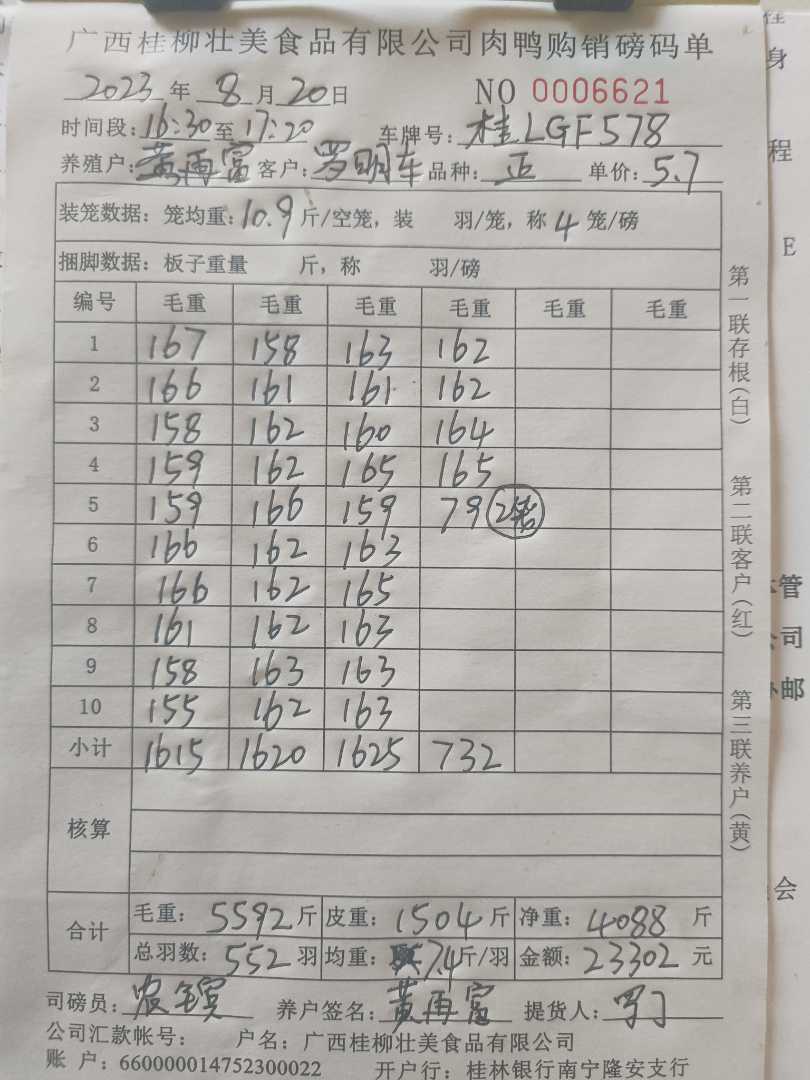 广西桂柳壮美食品有限公司肉鸭购销磅码单
2023年8月20日 NO 0006621
时间段:16:30至17:20 车牌号:桂LGF578
养殖户:黄再富 客户:罗明车 品种:正 单价:5.7
装笼数据:笼均重:10.9斤/空笼,装 羽/笼,称4笼/磅
捆脚数据:板子重量 斤,称 羽/磅
编号 毛重 毛重 毛重 毛重 毛重 毛重
1 167 158 163 162
2 166 161 161 162
3 158 162 160 164
4 159 162 165 165
5 159 166 159 79 2笼
6 166 162 163
7 166 162 165
8 161 162 163
9 158 163 163
10 155 162 163
小计 1615 1620 1625 732
核算
合计 毛重:5592斤 皮重:1504斤 净重:4088斤
总羽数:552羽 均重:7.4斤/羽 金额:23302元
司磅员: 养户签名:黄再富 提货人:
公司汇款帐号: 户名:广西桂柳壮美食品有限公司
账 户:660000014752300022 开户行:桂林银行南宁隆安支行
第一联存根(白) 第二联客户(红) 第三联养户(黄)
身
程
E
管
公司
邮
会